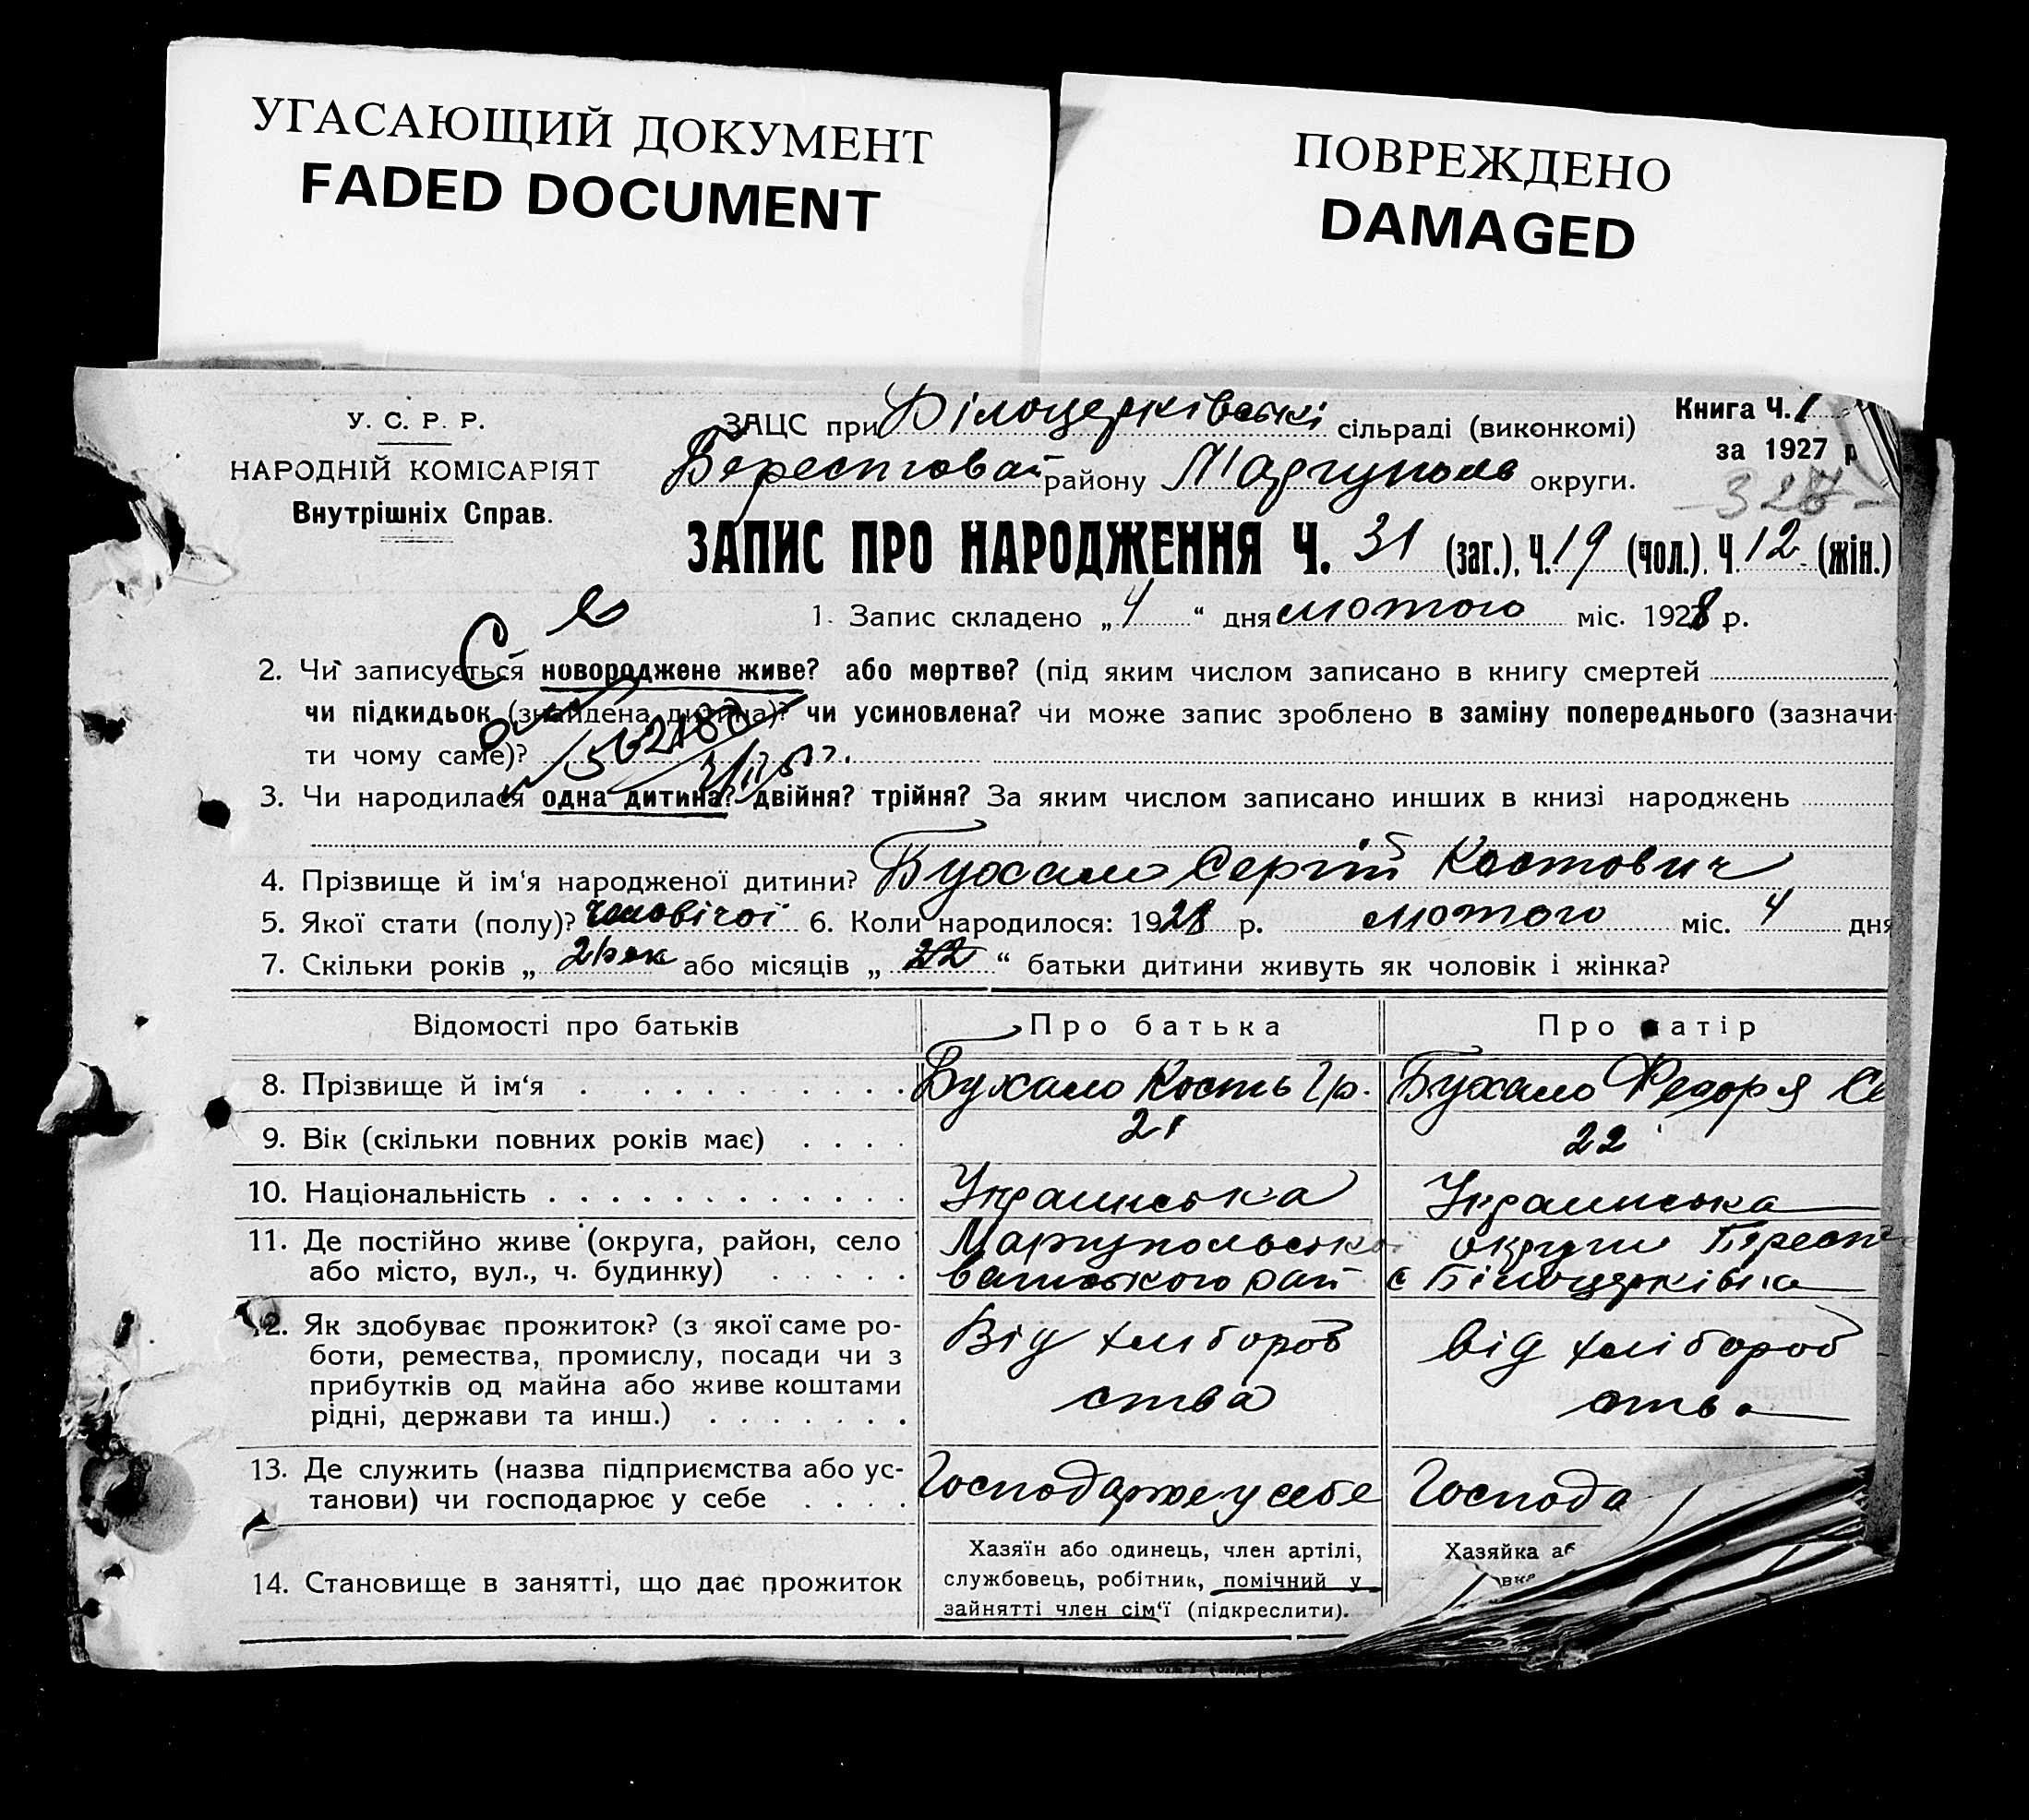 УГАСАЮЩИЙ ДОКУМЕНТ
FADED DOCUMENT
ПОВРЕЖДЕНО
DAMAGED
У. С. Р. Р.
НАРОДНІЙ КОМІСАРІЯТ
Внутрішніх Справ.
ЗАЦС при Білоцерківські сільраді (виконкомі)
Берестовай району Маріуполь округи.
Книга Ч. 1
за 1927 р
ЗАПИС ПРО НАРОДЖЕННЯ Ч. 31 (заг.), Ч. 19 (чол.), Ч. 12 (жін.)
1. Запис складено „ 4 “ дня лютого міс. 1928 р.
2. Чи записується новороджене живе? або мертве? (під яким числом записано в книгу смертей )
чи підкидьок (знайдена дитина)? чи усиновлена? чи може запис зроблено в заміну попереднього (зазначи-
ти чому саме)?
3. Чи народилася одна дитина? двійня? трійня? За яким числом записано инших в книзі народжень
4. Прізвище й ім‘я народженої дитини? Бухало Сергій Костович
5. Якої стати (полу)? чоловічої 6. Коли народилося: 1928 р. лютого міс. 4 дня
7. Скільки років „ або місяців „ 22 “ батьки дитини живуть як чоловік і жінка?
Відомості про батьків Про батька Про матір
8. Прізвище й ім‘я Бухало Кость Гр. Бухало Федоря Се
9. Вік (скільки повних років має) 21 22
10. Національність Украинська Украинська
11. Де постійно живе (округа, район, село Маріупольської округи Берест
або місто, вул., ч. будинку) ватського рай с Білоцерківка
12. Як здобуває прожиток? (з якої саме ро- Від хлібороб від хлібороб
боти, ремества, промислу, посади чи з
прибутків од майна або живе коштами ства ства
рідні, держави та инш.)
13. Де служить (назва підприємства або ус- Господарює у себе Господа
танови) чи господарює у себе
14. Становище в занятті, що дає прожиток
Хазяїн або одинець, член артілі,
службовець, робітник, помічний у
зайнятті член сім‘ї (підкреслити).
Хазяйка аб